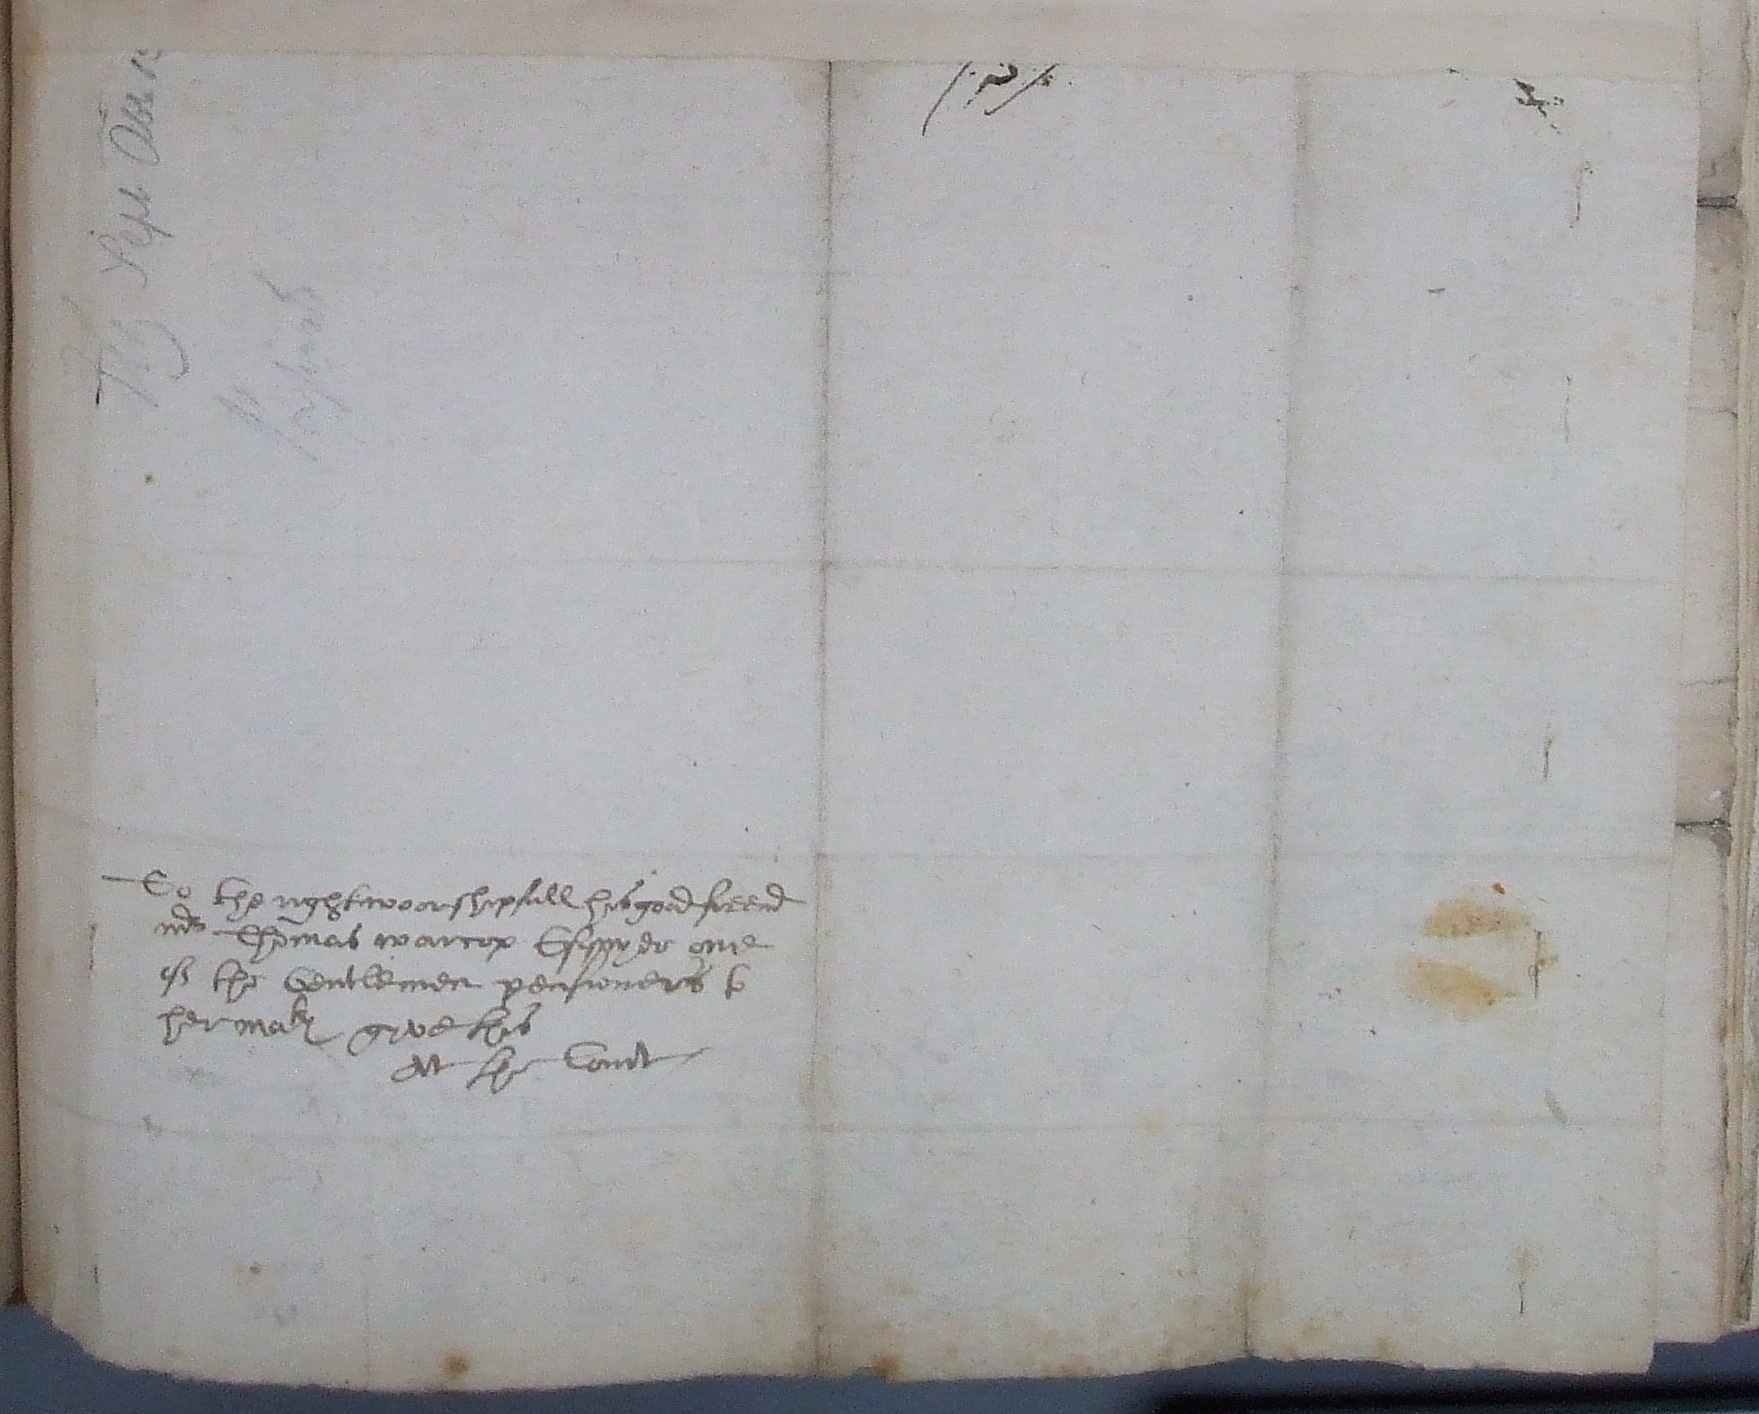 To the right woorshipfull his good freend
mr Thomas warcop Esqyer one
of the Gentlemen pensioners to
her matie gyve this
At the Court